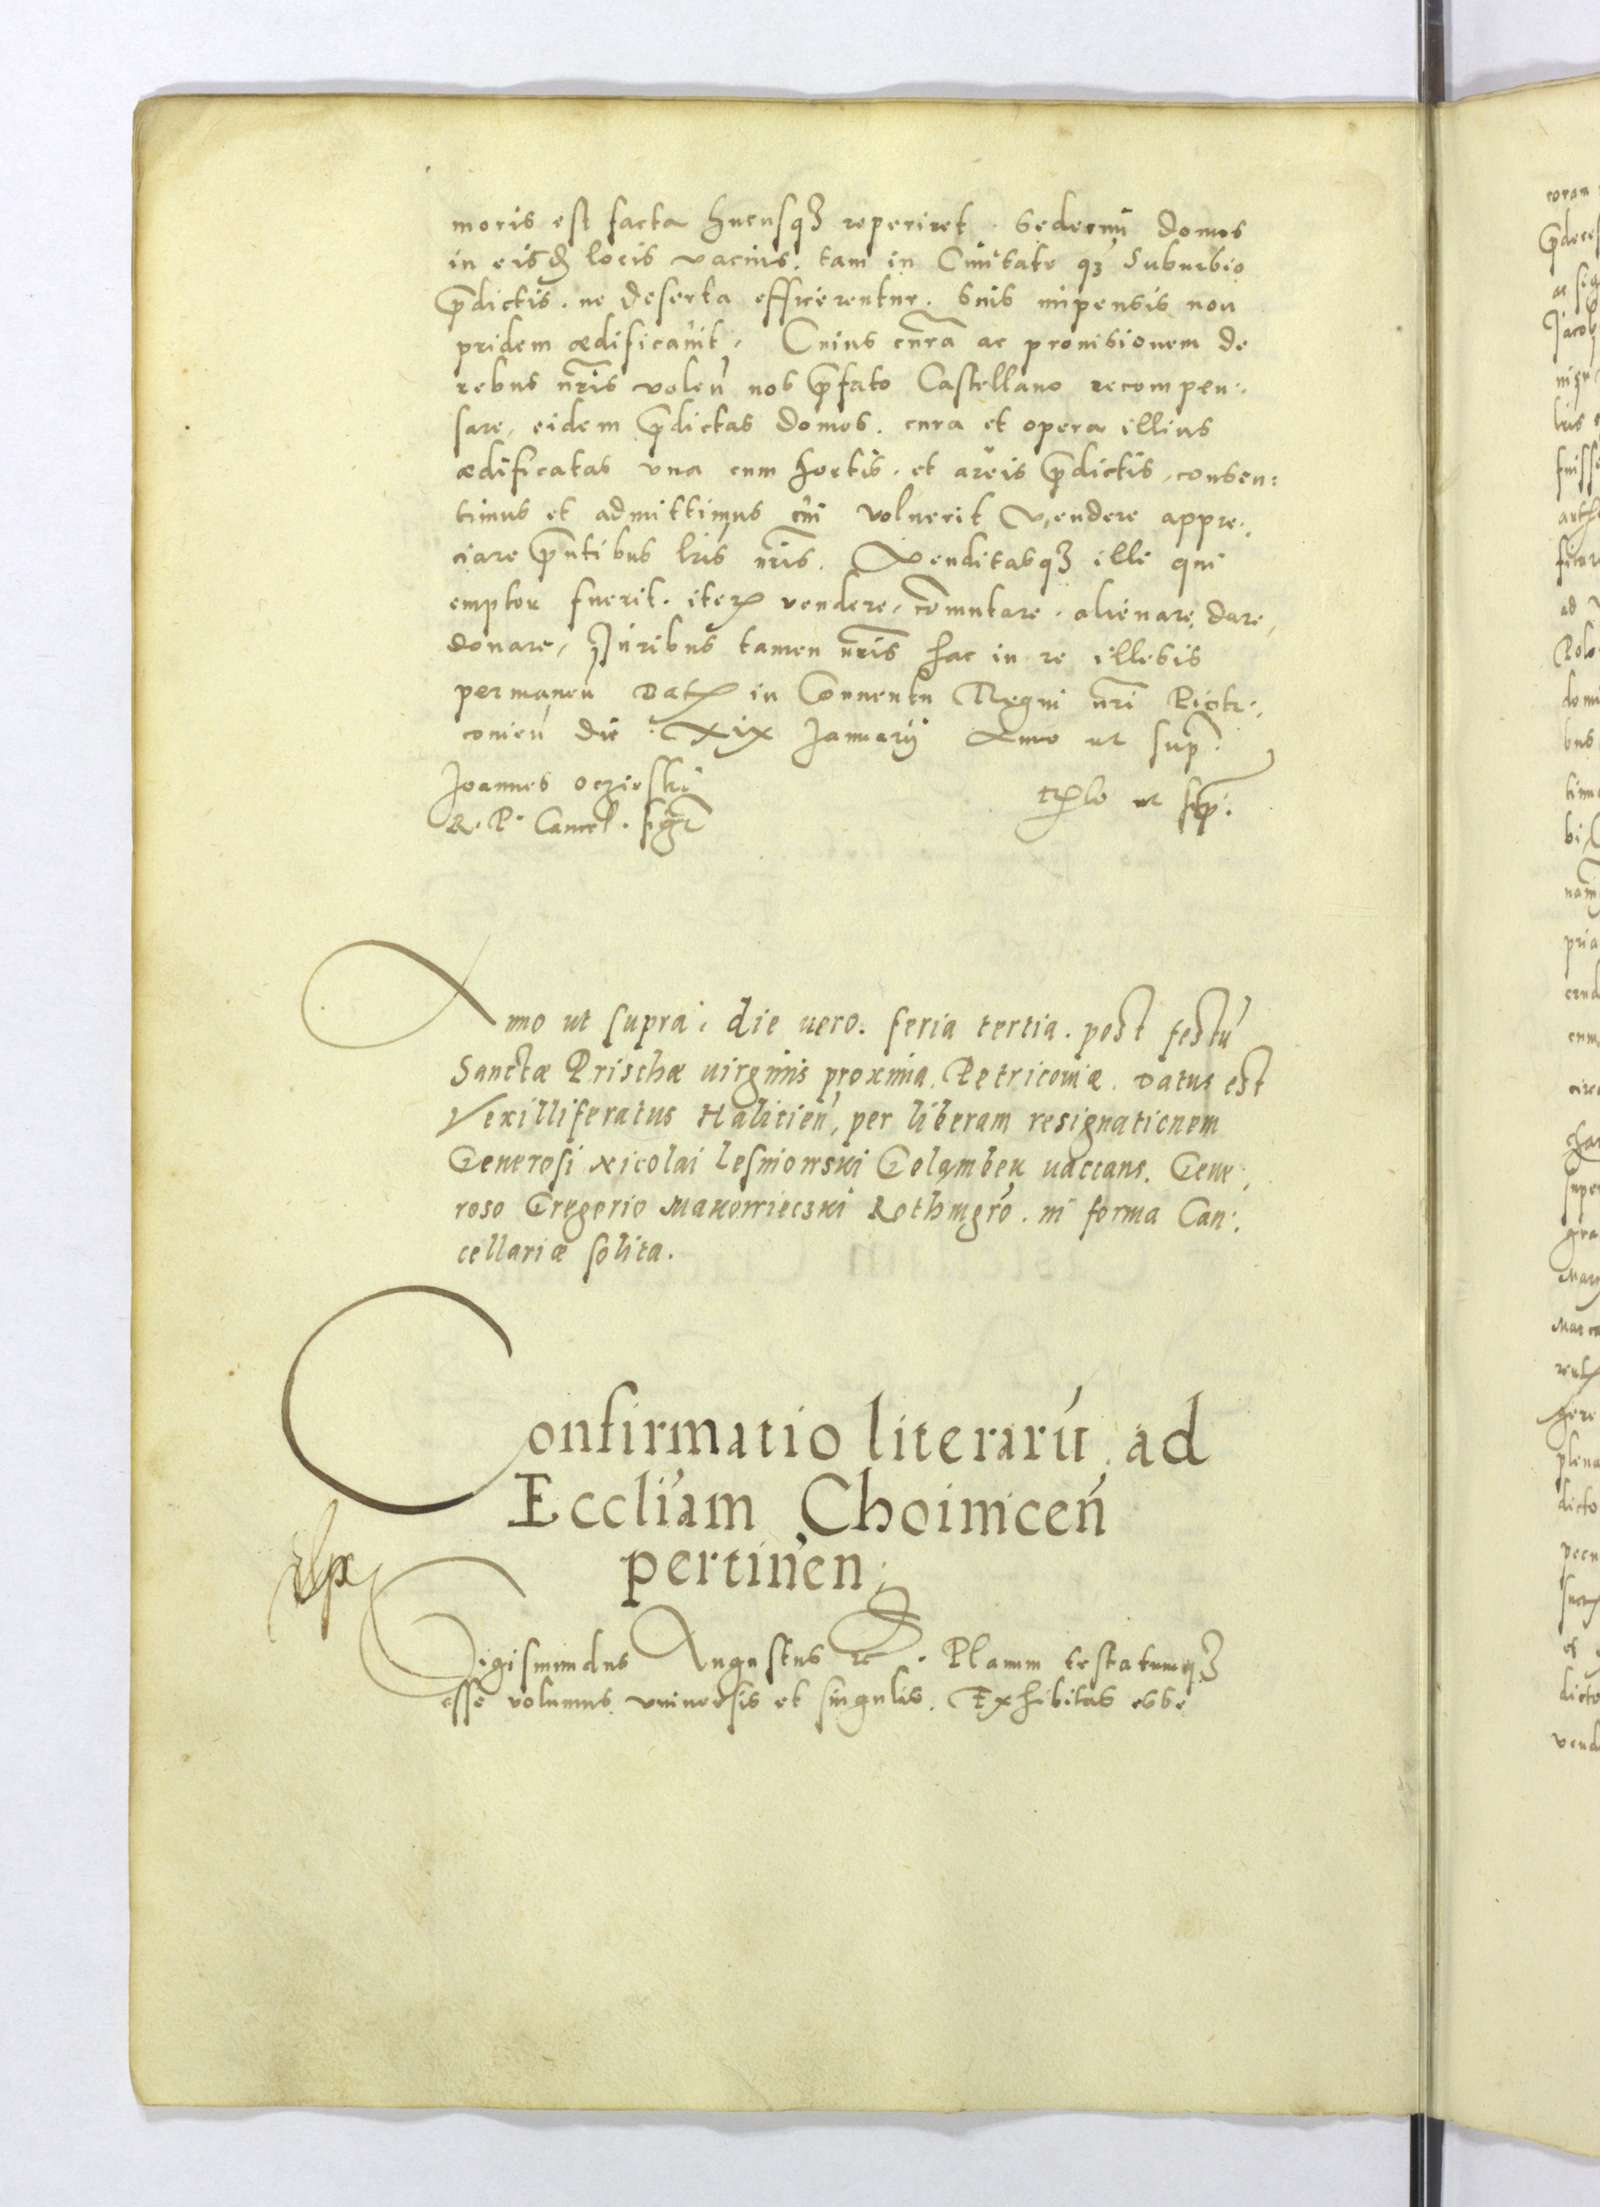 moris est facta hucusq3 reperiret. Sedecim domos
in eisd locis vacuis. tam in Civitate q3 Suburbio
pdictis. ne deserta efficerentur. Suis impensis non
pridem ædificavit. Cuius curā ac provisionem de
rebus nrīs voleń nos pfato Castellano recompen:
sare, eidem pdictas domos. cura et opera illius
ædificatas una cum hortis. et areis pdictis, consen:
timus et admittimus cui voluerit vendere appre:
ciare pntibus lris nrīs. Venditasq3 ille qui
emptor fuerit. iterꝝ vendere, cōmutare. alienare, dare,
donare, Juribus tamen nrīs hac in re illesis
permaneń Datꝝ in Conventu Regni nrī Piotr:
conień die XIX January Anno ut sup.
Joannes oczieski
R. P. Cancel. sigr̄ tꝝlo ut sup.
Anno ut supra, die vero. feria tertia. post festū
Sanctæ Prischæ virginis proxima. Petricoviæ. Datus est
Vexilliferatus Halicień, per liberam resignationem
Generosi Nicolai Lesniowski Colymbeń vaccans. Gene:
roso Gregorio Makowieczki Rothmgrō. in forma Can:
cellariæ solita.
Confirmatio literarū ad
Eccliam Choinicen̄
pertinen̄
Sigismundus Augustus rc. Planum testatumq3
esse volumus universis et singulis. Exhibitas esse